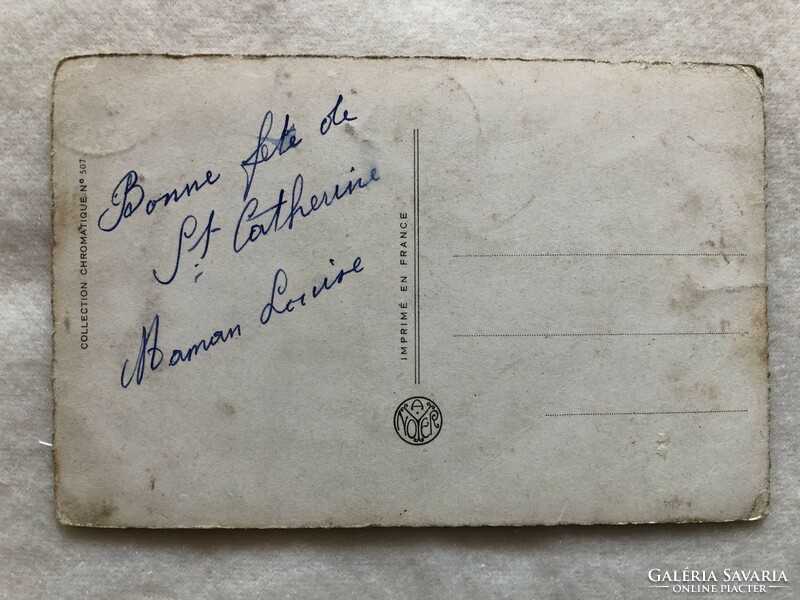 COLLECTION CHROMATIQUE Nº 507.
Bonne fête de
St Catherine
Maman Louise
IMPRIMÉ EN FRANCE
A
NOYER
GALÉRIA SAVARIA
ONLINE PIACTÉR